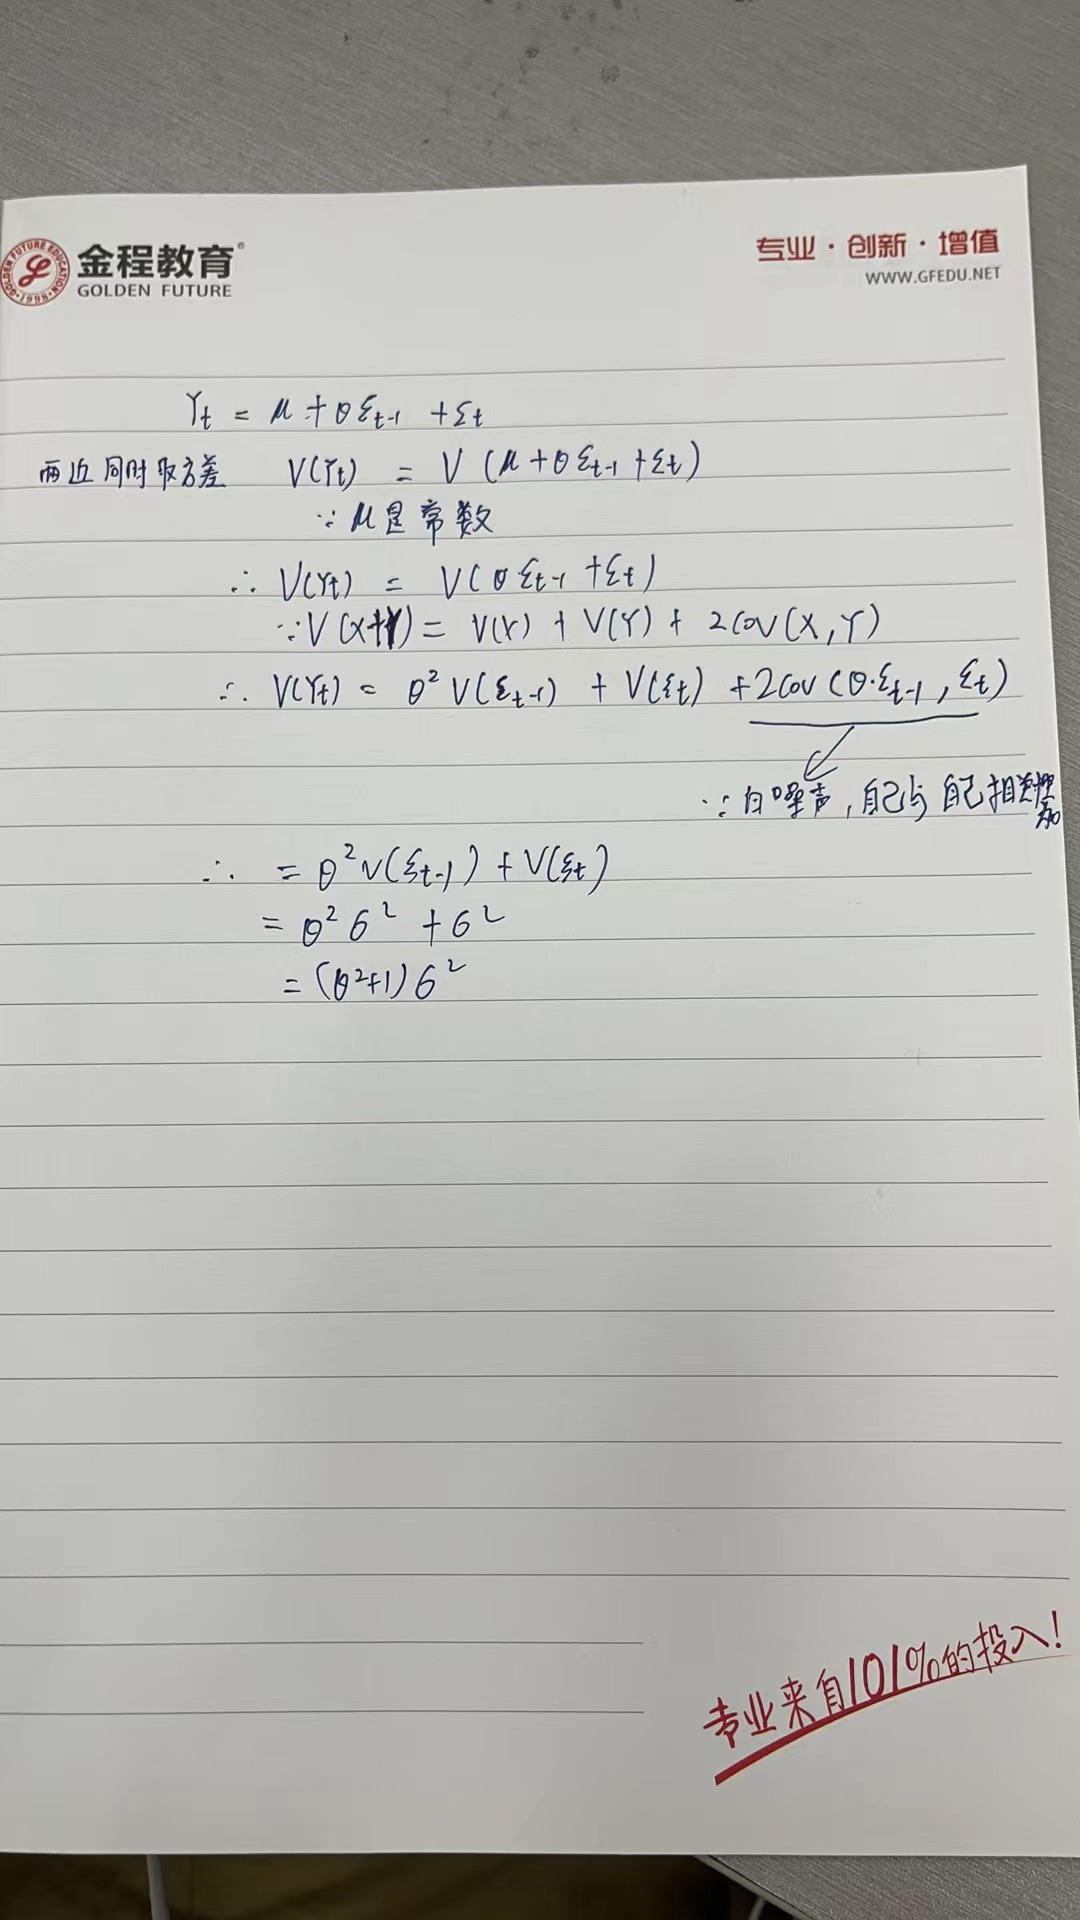 GOLDEN FUTURE EDUCATION
·1998·
金程教育®
GOLDEN FUTURE
专业·创新·增值
WWW.GFEDU.NET
Yt = μ + θ εt-1 + εt
两边同时取方差 V(Yt) = V (μ + θ εt-1 + εt)
∵ μ是常数
∴ V(Yt) = V(θ εt-1 + εt)
∵ V(X+Y) = V(X) + V(Y) + 2COV(X,Y)
∴ V(Yt) = θ² V(εt-1) + V(εt) + 2COV(θ·εt-1, εt)
∵ 白噪声,自己与自己相关性为0
∴ = θ² V(εt-1) + V(εt)
= θ² σ² + σ²
= (θ²+1) σ²
专业来自101%的投入!